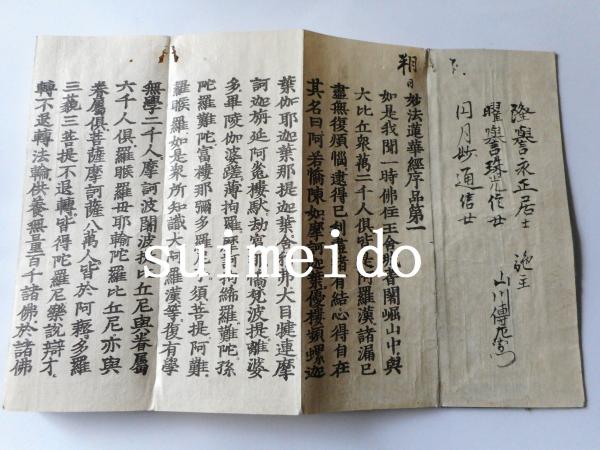 隆譽永正居士 施主
曜譽珠光信女
円月妙通信女
山川傳
朔日
妙法蓮華經序品第一
如是我聞一時佛住王舍城耆闍崛山中與
大比丘衆萬二千人俱皆是阿羅漢諸漏已
盡無復煩惱逮得已利盡諸有結心得自在
其名曰阿若憍陳如摩訶迦葉優樓頻螺迦
葉伽耶迦葉那提迦葉舍利弗大目犍連摩
訶迦旃延阿㝹樓馱劫賓那憍梵波提離婆
多畢陵伽婆蹉薄拘羅摩訶拘絺羅難陀孫
陀羅難陀富樓那彌多羅尼子須菩提阿難
羅睺羅如是衆所知識大阿羅漢等復有學
無學二千人摩訶波闍波提比丘尼與眷屬
六千人俱羅睺羅母耶輸陀羅比丘尼亦與
眷屬俱菩薩摩訶薩八萬人皆於阿耨多羅
三藐三菩提不退轉皆得陀羅尼樂說辯才
轉不退轉法輪供養無量百千諸佛於諸佛
suimeido